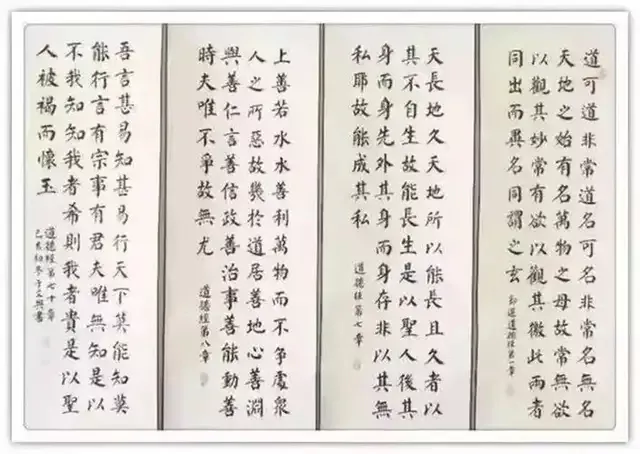 道可道非常道名可名非常名無名
天地之始有名萬物之母故常無欲
以觀其妙常有欲以觀其徼此兩者
同出而異名同謂之玄
節選道德經第一章
天長地久天地所以能長且久者以
其不自生故能長生是以聖人後其
身而身先外其身而身存非以其無
私耶故能成其私
道德經第七章
上善若水水善利萬物而不爭處衆
人之所惡故幾於道居善地心善淵
與善仁言善信政善治事善能動善
時夫唯不爭故無尤
道德經第八章
吾言甚易知甚易行天下莫能知莫
能行言有宗事有君夫唯無知是以
不我知知我者希則我者貴是以聖
人被褐而懷玉
道德經第七十章
己亥初冬